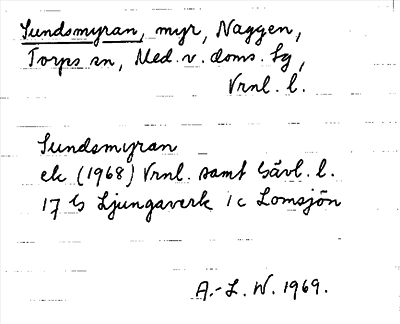 Sundsmyran, myr, Naggen,
Torps sn, Med. v. doms. lg,
Vrnl. l.
Sundsmyran
ek (1968) Vrnl. samt Gävl. l.
17 G Ljungaverk 1 c Lomsjön
A.-L. W. 1969.